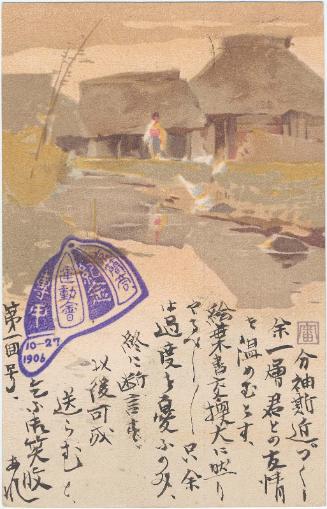 分袖期近づく
余一層君との友情
を温めむとす、
絵葉書交換大に然り
やるべし、只余
は過度を憂ふのみ、
終に断言す、
以後可成
送らむと、
乞ふ御笑收
第一回号、
運動會
記念
10-27
1906